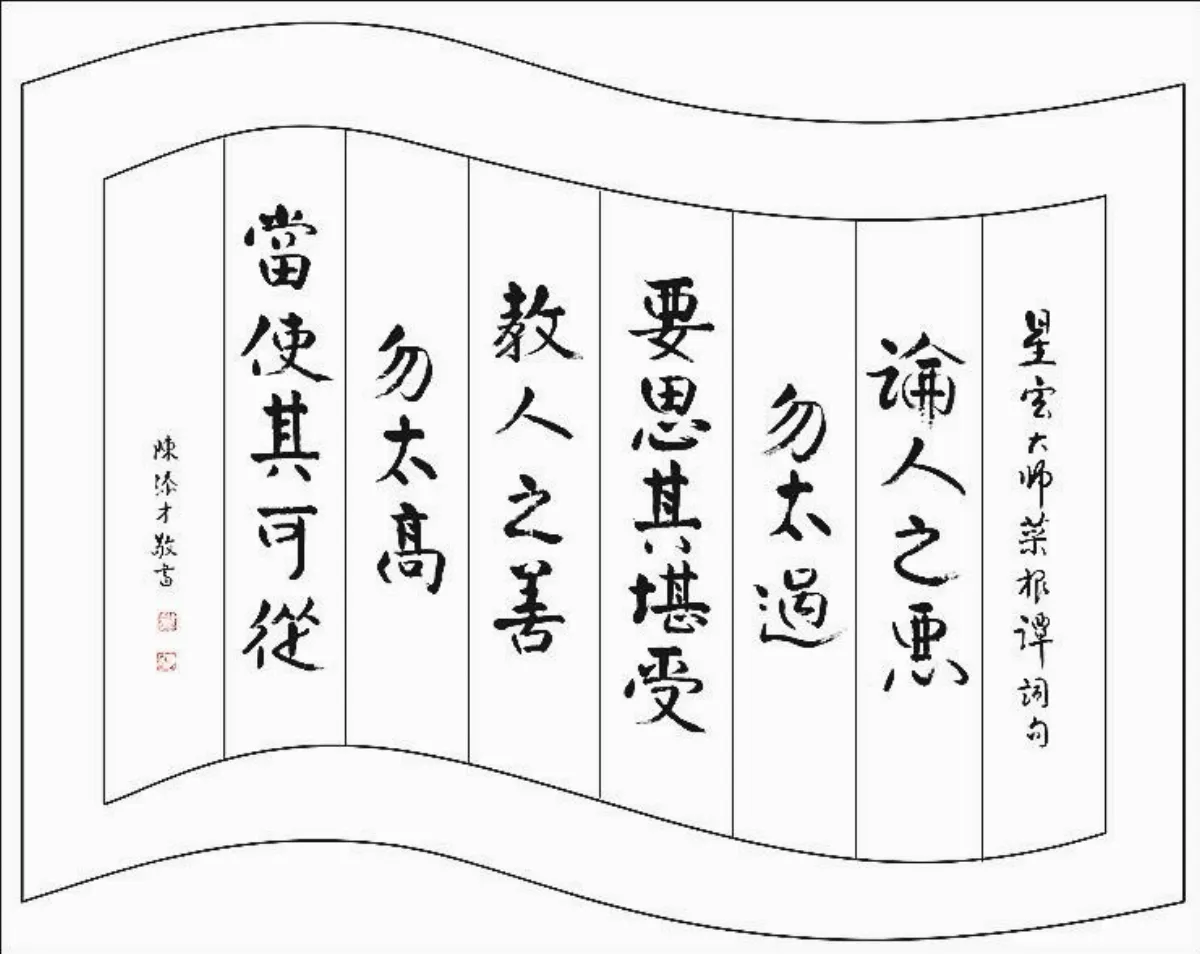 星雲大师菜根譚詞句
論人之惡
勿太過
要思其堪受
教人之善
勿太高
當使其可從
陳添才敬書